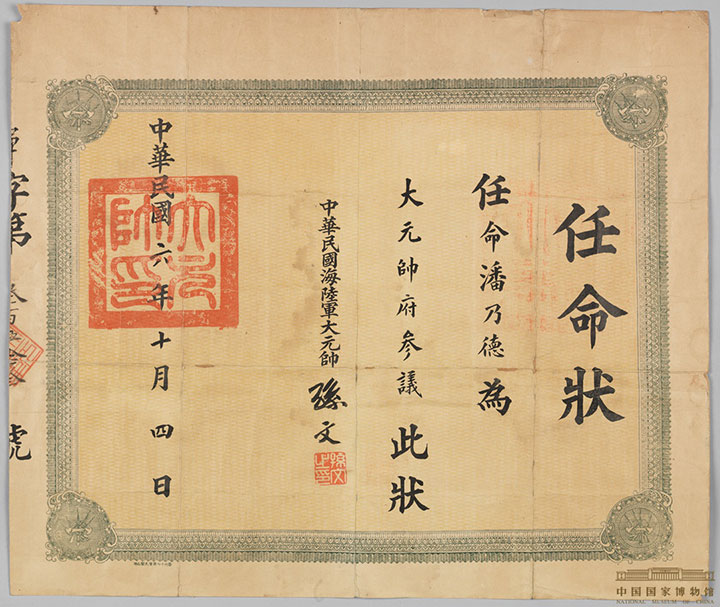 任命狀
任命潘乃德為
大元帥府參議此狀
中華民國海陸軍大元帥孫文
孫文之印
中華民國六年十月四日
大元帥印
字第
號
中国国家博物馆
NATIONAL MUSEUM OF CHINA